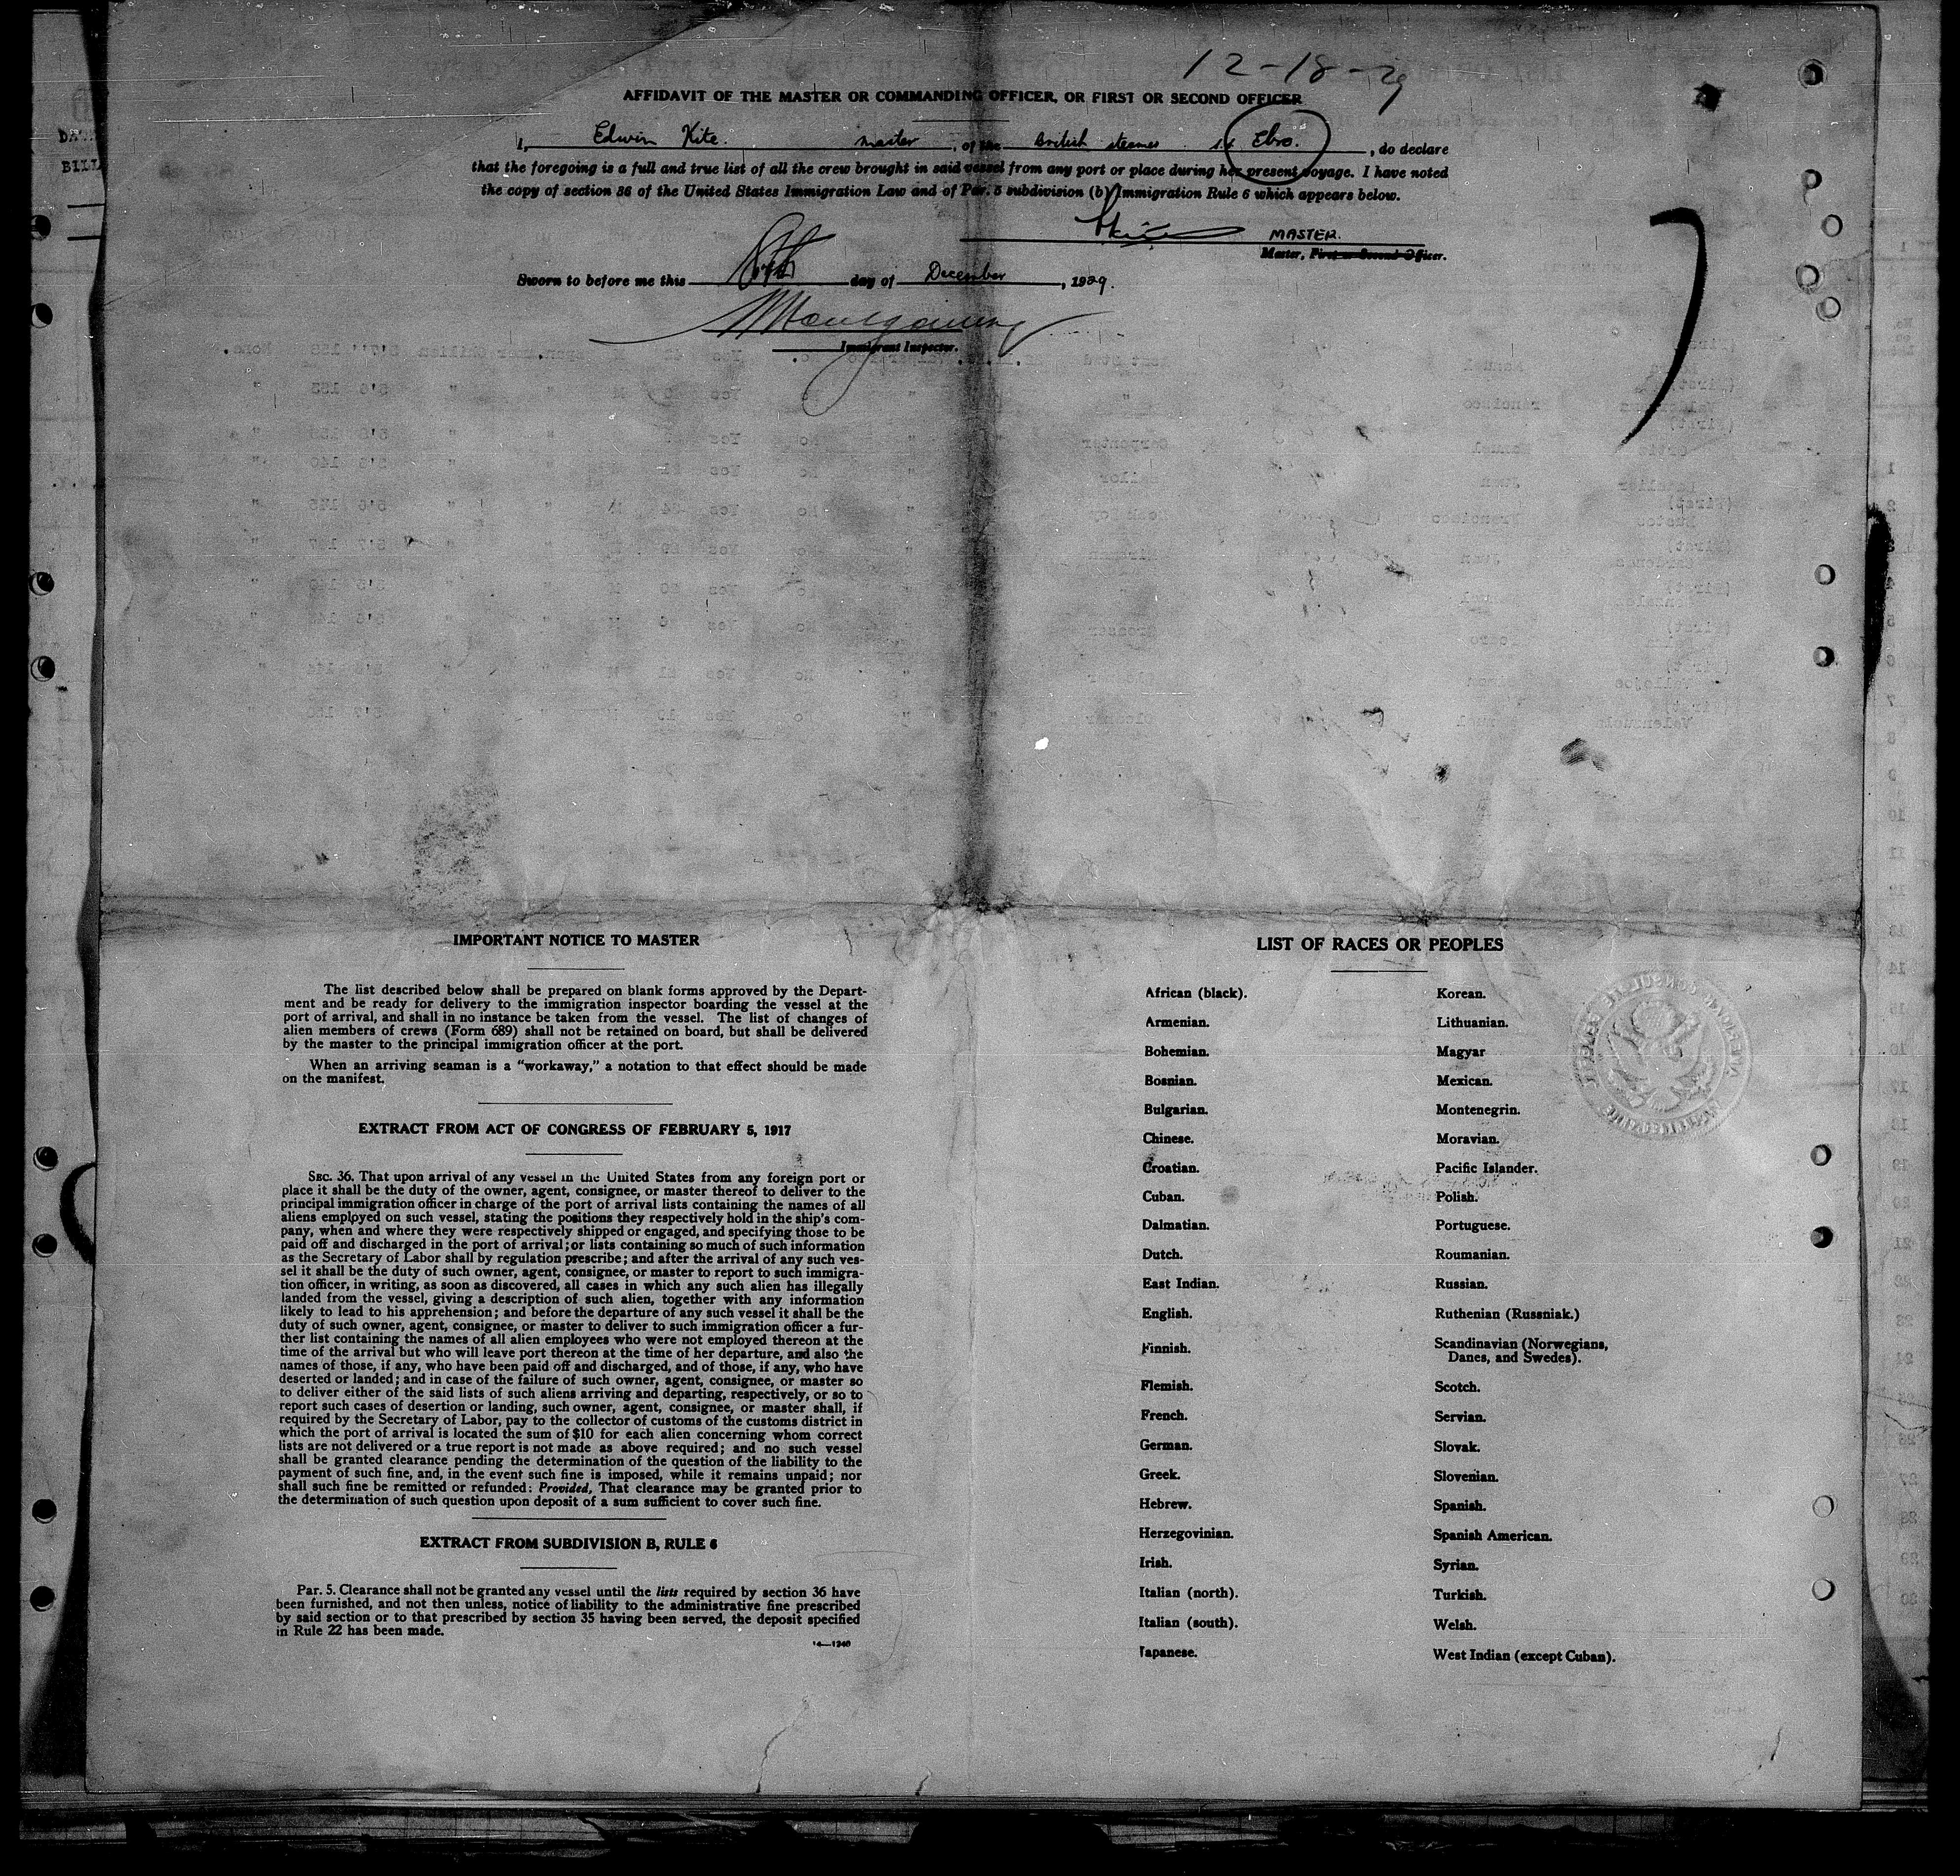 12-18-29
AFFIDAVIT OF THE MASTER OR COMMANDING OFFICER, OR FIRST OR SECOND OFFICER
I, Edwin Kite. master, of the British steamer ss Ebro., do declare
that the foregoing is a full and true list of all the crew brought in said vessel from any port or place during her present voyage. I have noted
the copy of section 36 of the United States Immigration Law and of Par. 5 subdivision (b) Immigration Rule 6 which appears below.
MASTER.
Master, First or Second Officer.
Sworn to before me this day of December, 1929.
Immigrant Inspector.
IMPORTANT NOTICE TO MASTER
The list described below shall be prepared on blank forms approved by the Depart-
ment and be ready for delivery to the immigration inspector boarding the vessel at the
port of arrival, and shall in no instance be taken from the vessel. The list of changes of
alien members of crews (Form 689) shall not be retained on board, but shall be delivered
by the master to the principal immigration officer at the port.
When an arriving seaman is a "workaway," a notation to that effect should be made
on the manifest.
EXTRACT FROM ACT OF CONGRESS OF FEBRUARY 5, 1917
SEC. 36. That upon arrival of any vessel in the United States from any foreign port or
place it shall be the duty of the owner, agent, consignee, or master thereof to deliver to the
principal immigration officer in charge of the port of arrival lists containing the names of all
aliens employed on such vessel, stating the positions they respectively hold in the ship's com-
pany, when and where they were respectively shipped or engaged, and specifying those to be
paid off and discharged in the port of arrival; or lists containing so much of such information
as the Secretary of Labor shall by regulation prescribe; and after the arrival of any such ves-
sel it shall be the duty of such owner, agent, consignee, or master to report to such immigra-
tion officer, in writing, as soon as discovered, all cases in which any such alien has illegally
landed from the vessel, giving a description of such alien, together with any information
likely to lead to his apprehension; and before the departure of any such vessel it shall be the
duty of such owner, agent, consignee, or master to deliver to such immigration officer a fur-
ther list containing the names of all alien employees who were not employed thereon at the
time of the arrival but who will leave port thereon at the time of her departure, and also the
names of those, if any, who have been paid off and discharged, and of those, if any, who have
deserted or landed; and in case of the failure of such owner, agent, consignee, or master so
to deliver either of the said lists of such aliens arriving and departing, respectively, or so to
report such cases of desertion or landing, such owner, agent, consignee, or master shall, if
required by the Secretary of Labor, pay to the collector of customs of the customs district in
which the port of arrival is located the sum of $10 for each alien concerning whom correct
lists are not delivered or a true report is not made as above required; and no such vessel
shall be granted clearance pending the determination of the question of the liability to the
payment of such fine, and, in the event such fine is imposed, while it remains unpaid; nor
shall such fine be remitted or refunded: Provided, That clearance may be granted prior to
the determination of such question upon deposit of a sum sufficient to cover such fine.
EXTRACT FROM SUBDIVISION B, RULE 6
Par. 5. Clearance shall not be granted any vessel until the lists required by section 36 have
been furnished, and not then unless, notice of liability to the administrative fine prescribed
by said section or to that prescribed by section 35 having been served, the deposit specified
in Rule 22 has been made.
14—1240
LIST OF RACES OR PEOPLES
African (black).
Armenian.
Bohemian.
Bosnian.
Bulgarian.
Chinese.
Croatian.
Cuban.
Dalmatian.
Dutch.
East Indian.
English.
Finnish.
Flemish.
French.
German.
Greek.
Hebrew.
Herzegovinian.
Irish.
Italian (north).
Italian (south).
Japanese.
Korean.
Lithuanian.
Magyar
Mexican.
Montenegrin.
Moravian.
Pacific Islander.
Polish.
Portuguese.
Roumanian.
Russian.
Ruthenian (Russniak.)
Scandinavian (Norwegians,
Danes, and Swedes).
Scotch.
Servian.
Slovak.
Slovenian.
Spanish.
Spanish American.
Syrian.
Turkish.
Welsh.
West Indian (except Cuban).